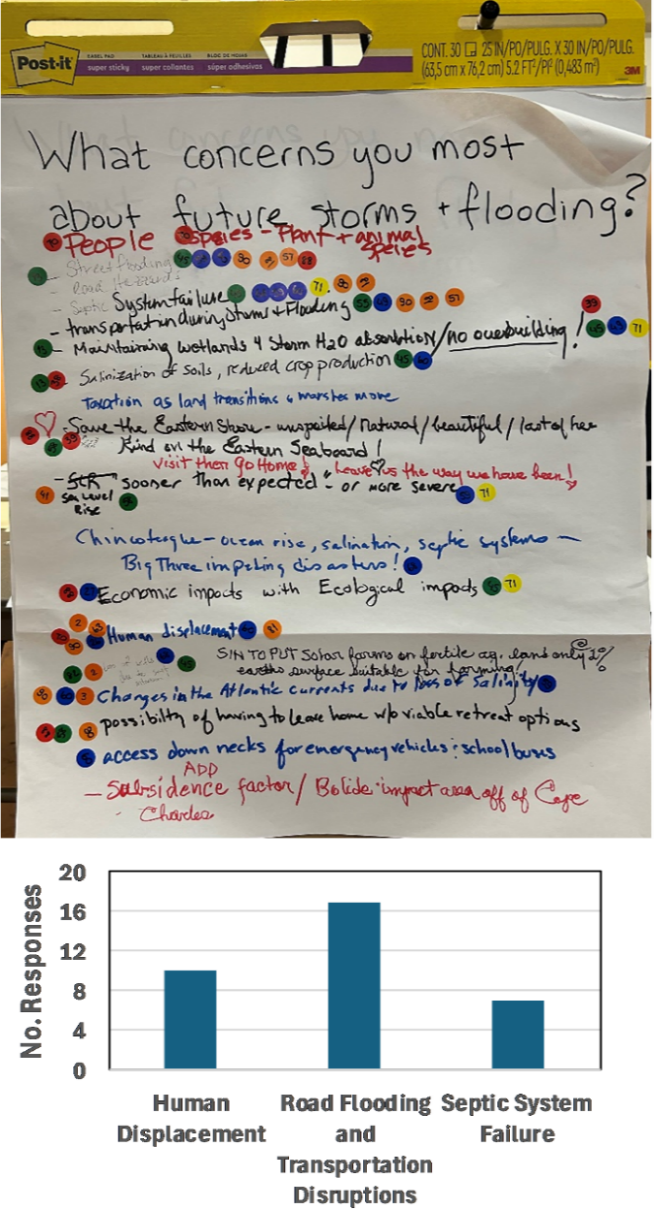 Post-it
EASEL PAD
super sticky
TABLEAU À FEUILLES
super collantes
BLOC DE HOJAS
súper adhesivas
CONT. 30 25 IN/PO/PULG. X 30 IN/PO/PULG.
(63,5 cm x 76,2 cm) 5.2 FT²/PI² (0,483 m²)
3M
What concerns you most
about future storms + flooding?
People species - Plant + animal
species
- Street flooding
Road
- Septic System failure
71
- transportation during Storms & Flooding
57
- Maintaining wetlands 4 Storm H2O absorbtion/no overbuilding!
71
Salinization of soils, reduced crop production
Taxation as land transitions & marshes move
- Save the Eastern Shore - unspoiled/natural/beautiful/last of her
Kind on the Eastern Seaboard!
Visit then go Home! Leave us the way we have been!
- SLR sooner than expected - or more severe
Sea Level
Rise
71
Chincoteague - ocean rise, salination, septic systems -
Big Three impending disasters!
Economic impacts with Ecological impacts
71
2
Human displacement
SIN TO PUT Solar farms on fertile ag. land only 2%
earths surface suitable for farming!
2
3
Changes in the Atlantic currents due to loss of Salinity
8 possibilty of having to leave home w/o viable retreat options
access down necks for emergency vehicles & school buses
ADD
- Subsidence factor / Bolide impact area off of Cape
Charles
No. Responses
20
16
12
8
4
0
Human Displacement
Road Flooding and Transportation Disruptions
Septic System Failure